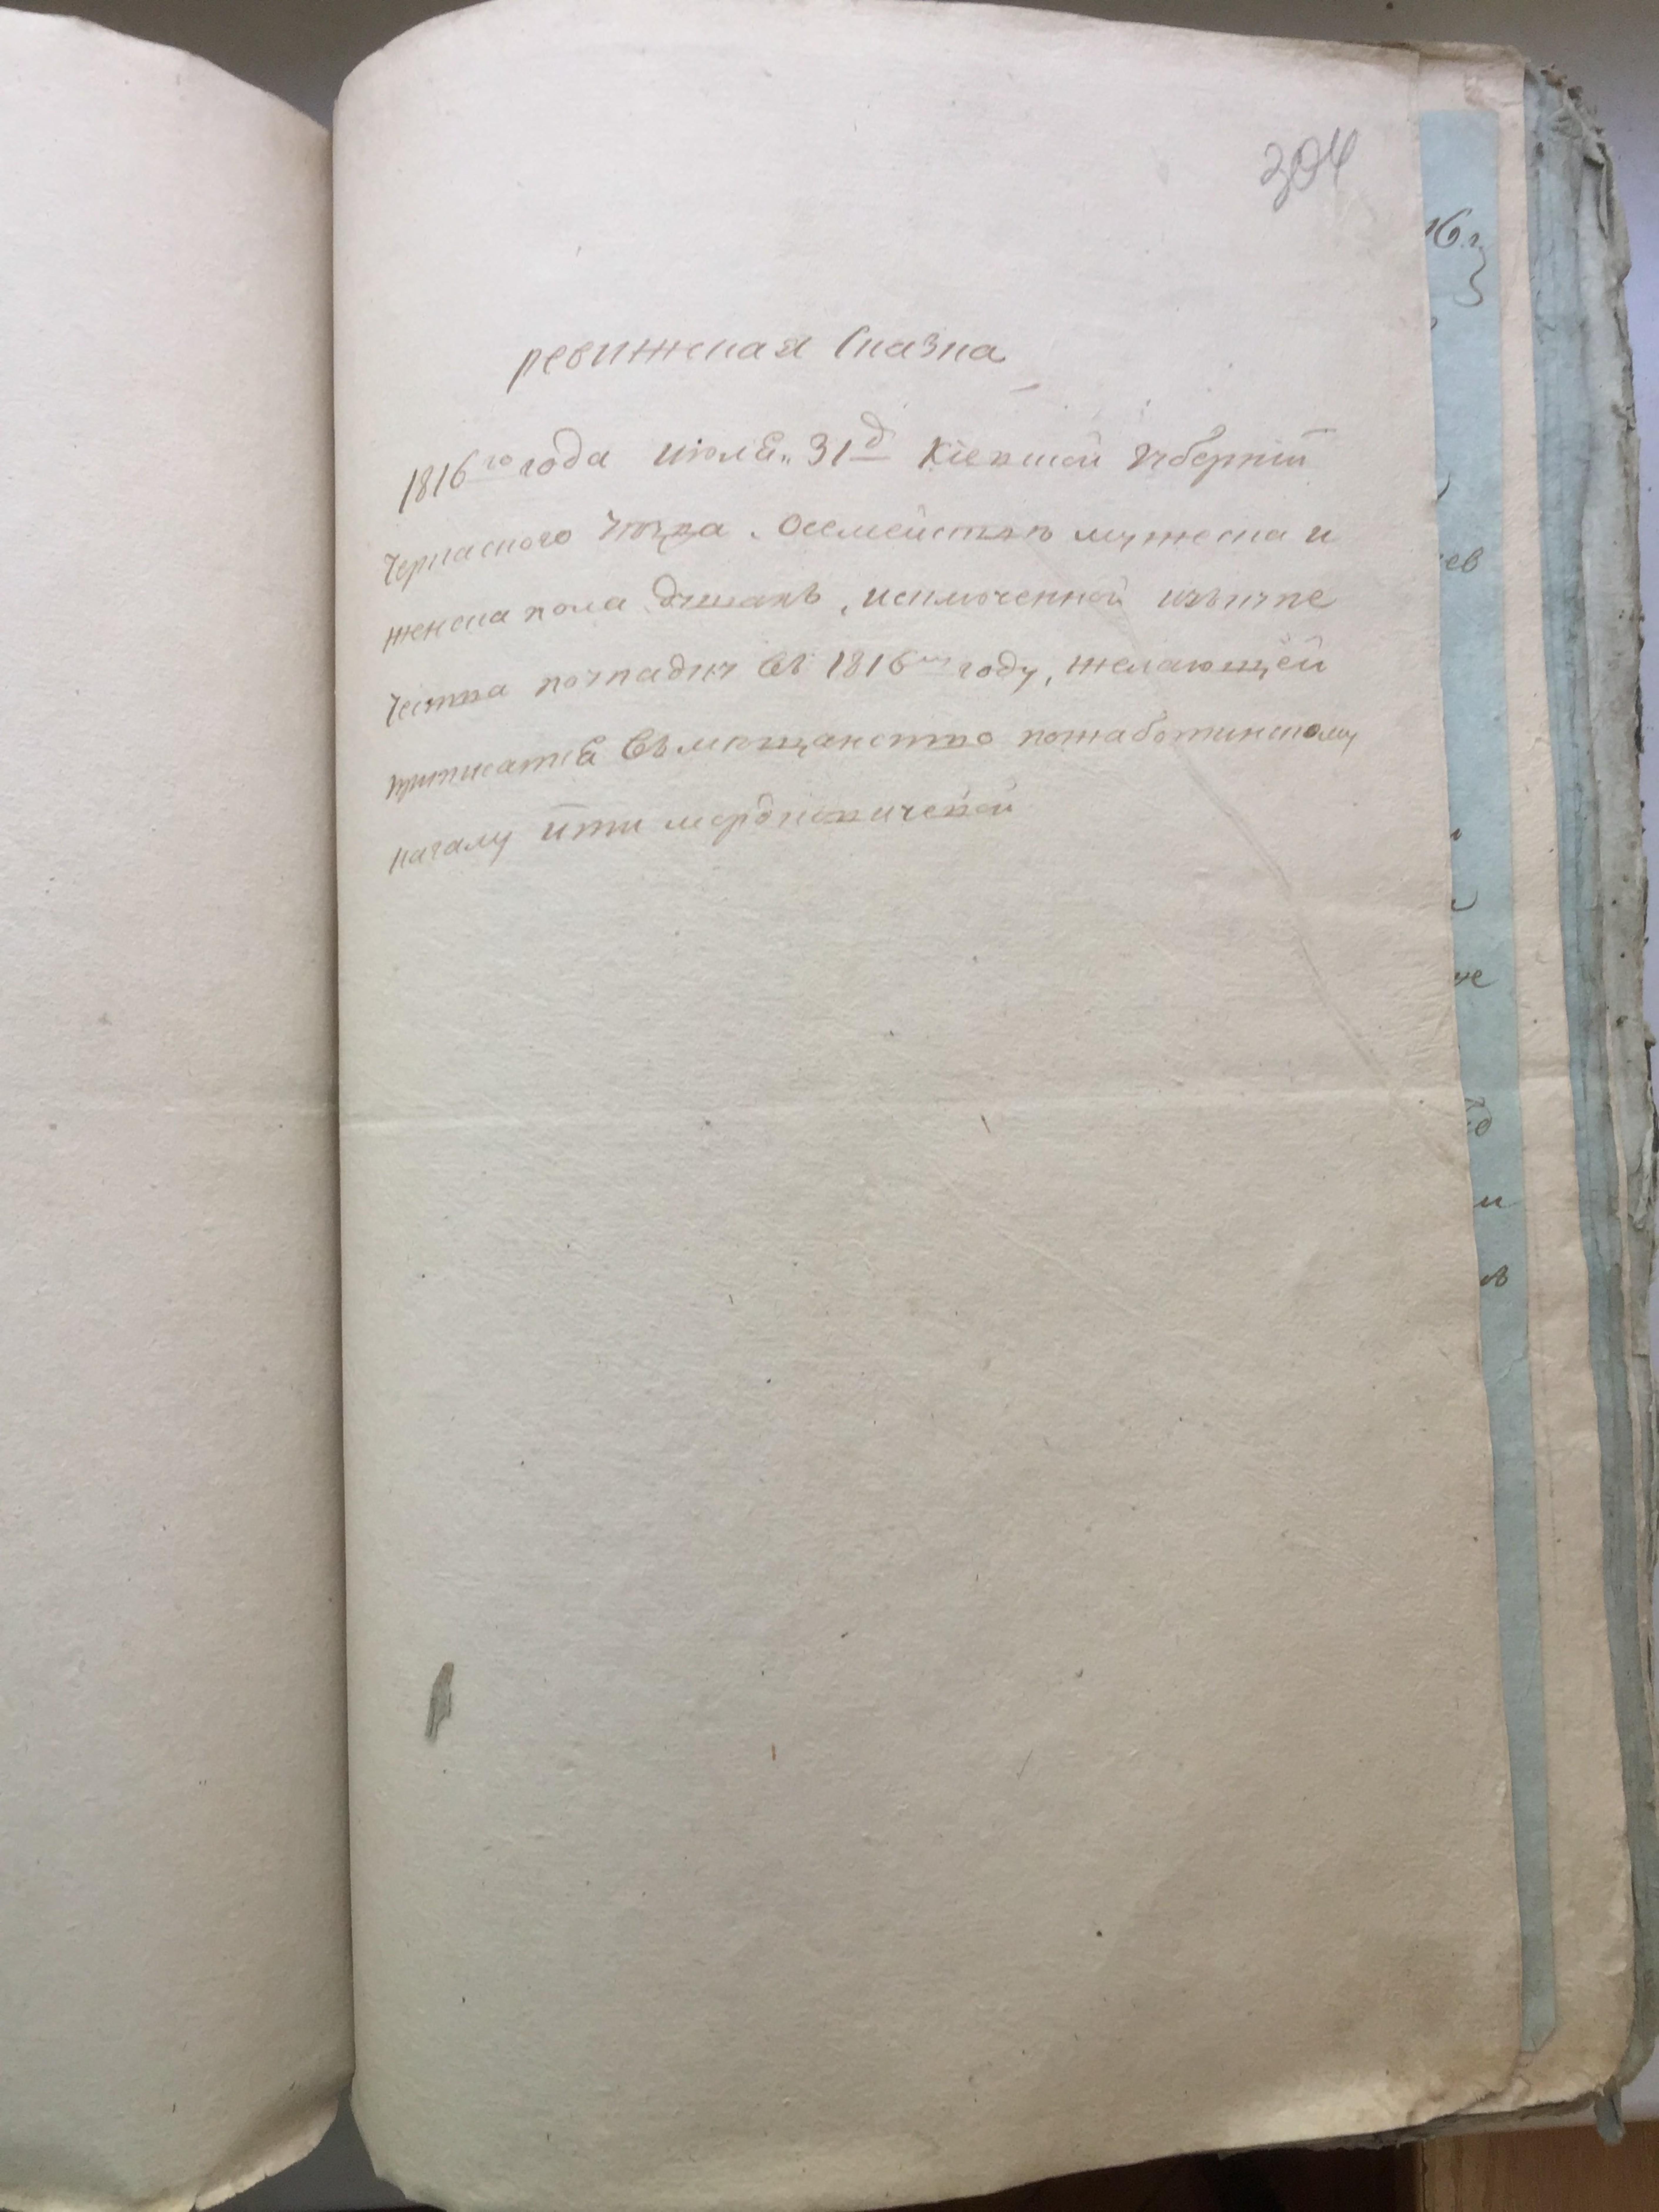 304
ревижская Сказка
1816го года июля 31д Кіевской губерніи
Черкаского уезда. Осемействъ мужеска и
женска пола душахъ, исключенной изъкупе
чества почпадит въ 1816му году, желающей
приписатся въмещанство пожаботинскому
кагалу Ити мордковичевой
16 г
ев
и